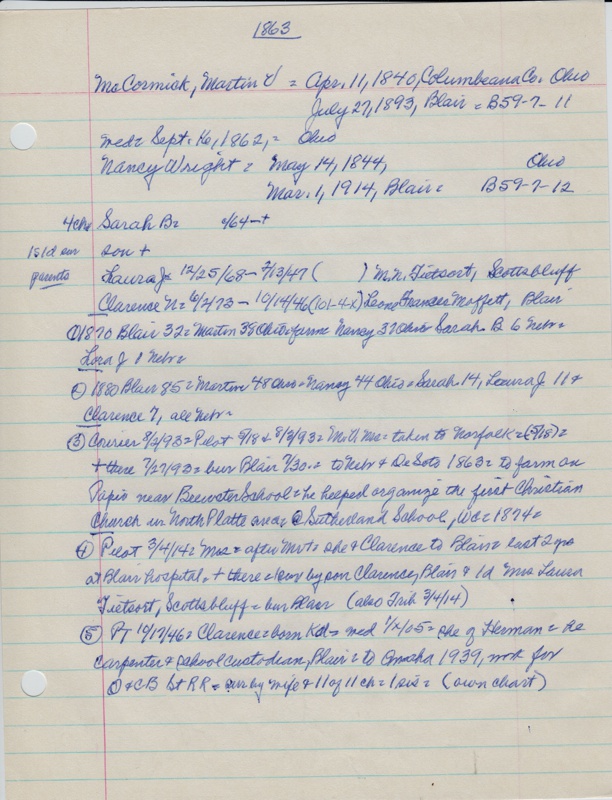 1863
McCormick, Martin V = Apr. 11, 1840, Columbeana Co. Ohio
July 27, 1893, Blair = B59-7-11
med = Sept. 16, 1862, = Ohio
Nancy Wright = May 14, 1844, Ohio
Mar. 1, 1914, Blair = B59-7-12
4 chn Sarah B = 64 - +
1s 1d sur son +
parents Laura J = 12/25/68 - 2/13/47 ( ) M.N. Tietsort, Scottsbluff
Clarence N = 6/2/73 - 10/14/46 (101-4-X) Leone Frances Moffett, Blair
① 1870 Blair 32 = Martin 38 Ohio = farms Nancy 37 Ohio Sarah B. 6 Nebr =
Lora J 1 Nebr =
② 1880 Blair 85 = Martin 48 Ohio = Nancy 44 Ohio = Sarah 14, Laura J 11 &
Clarence 7, all Nebr =
③ Courier 8/2/93 = Pilot 5/18 & 8/3/93 = = taken to Norfolk = (5/18) =
+ there 7/27/93 = bur Blair 7/30 = to Nebr & DeSoto 1863 = to farm on
Papio near Brewster School = he helped organize the first Christian
Church in North Platte area = @ Sutherland School, = 1874 =
④ Pilot 3/4/14 = Mrs = after = she & Clarence to Blair = last 2 yrs
at Blair hospital, + there = sur by son Clarence, Blair & 1d Mrs Laura
Tietsort, Scottsbluff = bur Blair (also Trib 3/4/14)
⑤ PT 10/17/46 = Clarence = born = med 1/X/05 = she of Herman = he
carpenter & school custodian, Blair = to Omaha 1939, work for
O & CB St RR = sur by wife & 11 of 11 ch = 1 sis = (own chart)